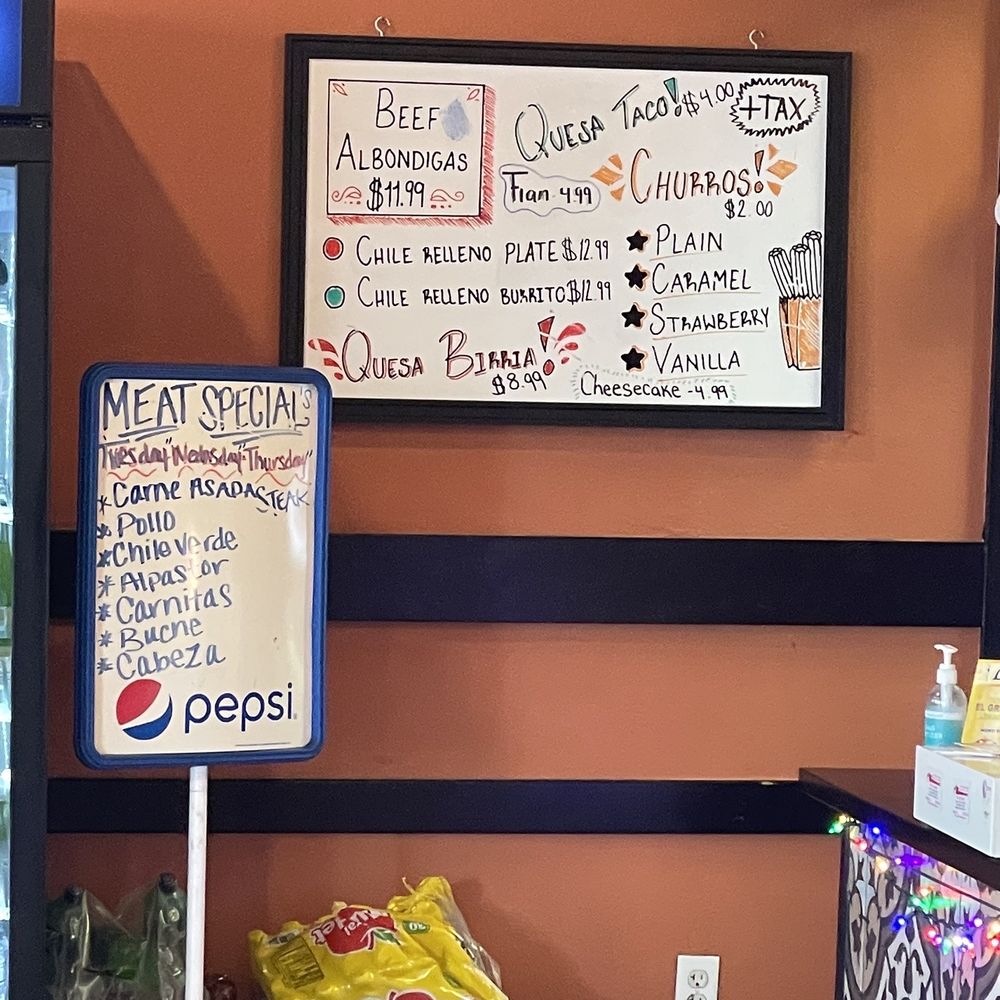 BEEF
ALBONDIGAS
$11.99
QUESA TACO! $4.00
+TAX
Flan - 4.99
CHURROS!
$2.00
CHILE RELLENO PLATE $12.99
CHILE RELLENO BURRITO $12.99
PLAIN
CARAMEL
STRAWBERRY
VANILLA
QUESA BIRRIA!
$8.99
Cheesecake - 4.99
MEAT SPECIAL'S
Tuesday" Wednsday" Thursday"
* Carne ASADA STEAK
* Pollo
* Chile Verde
* Alpastor
* Carnitas
* Buche
* Cabeza
pepsi
EL GR